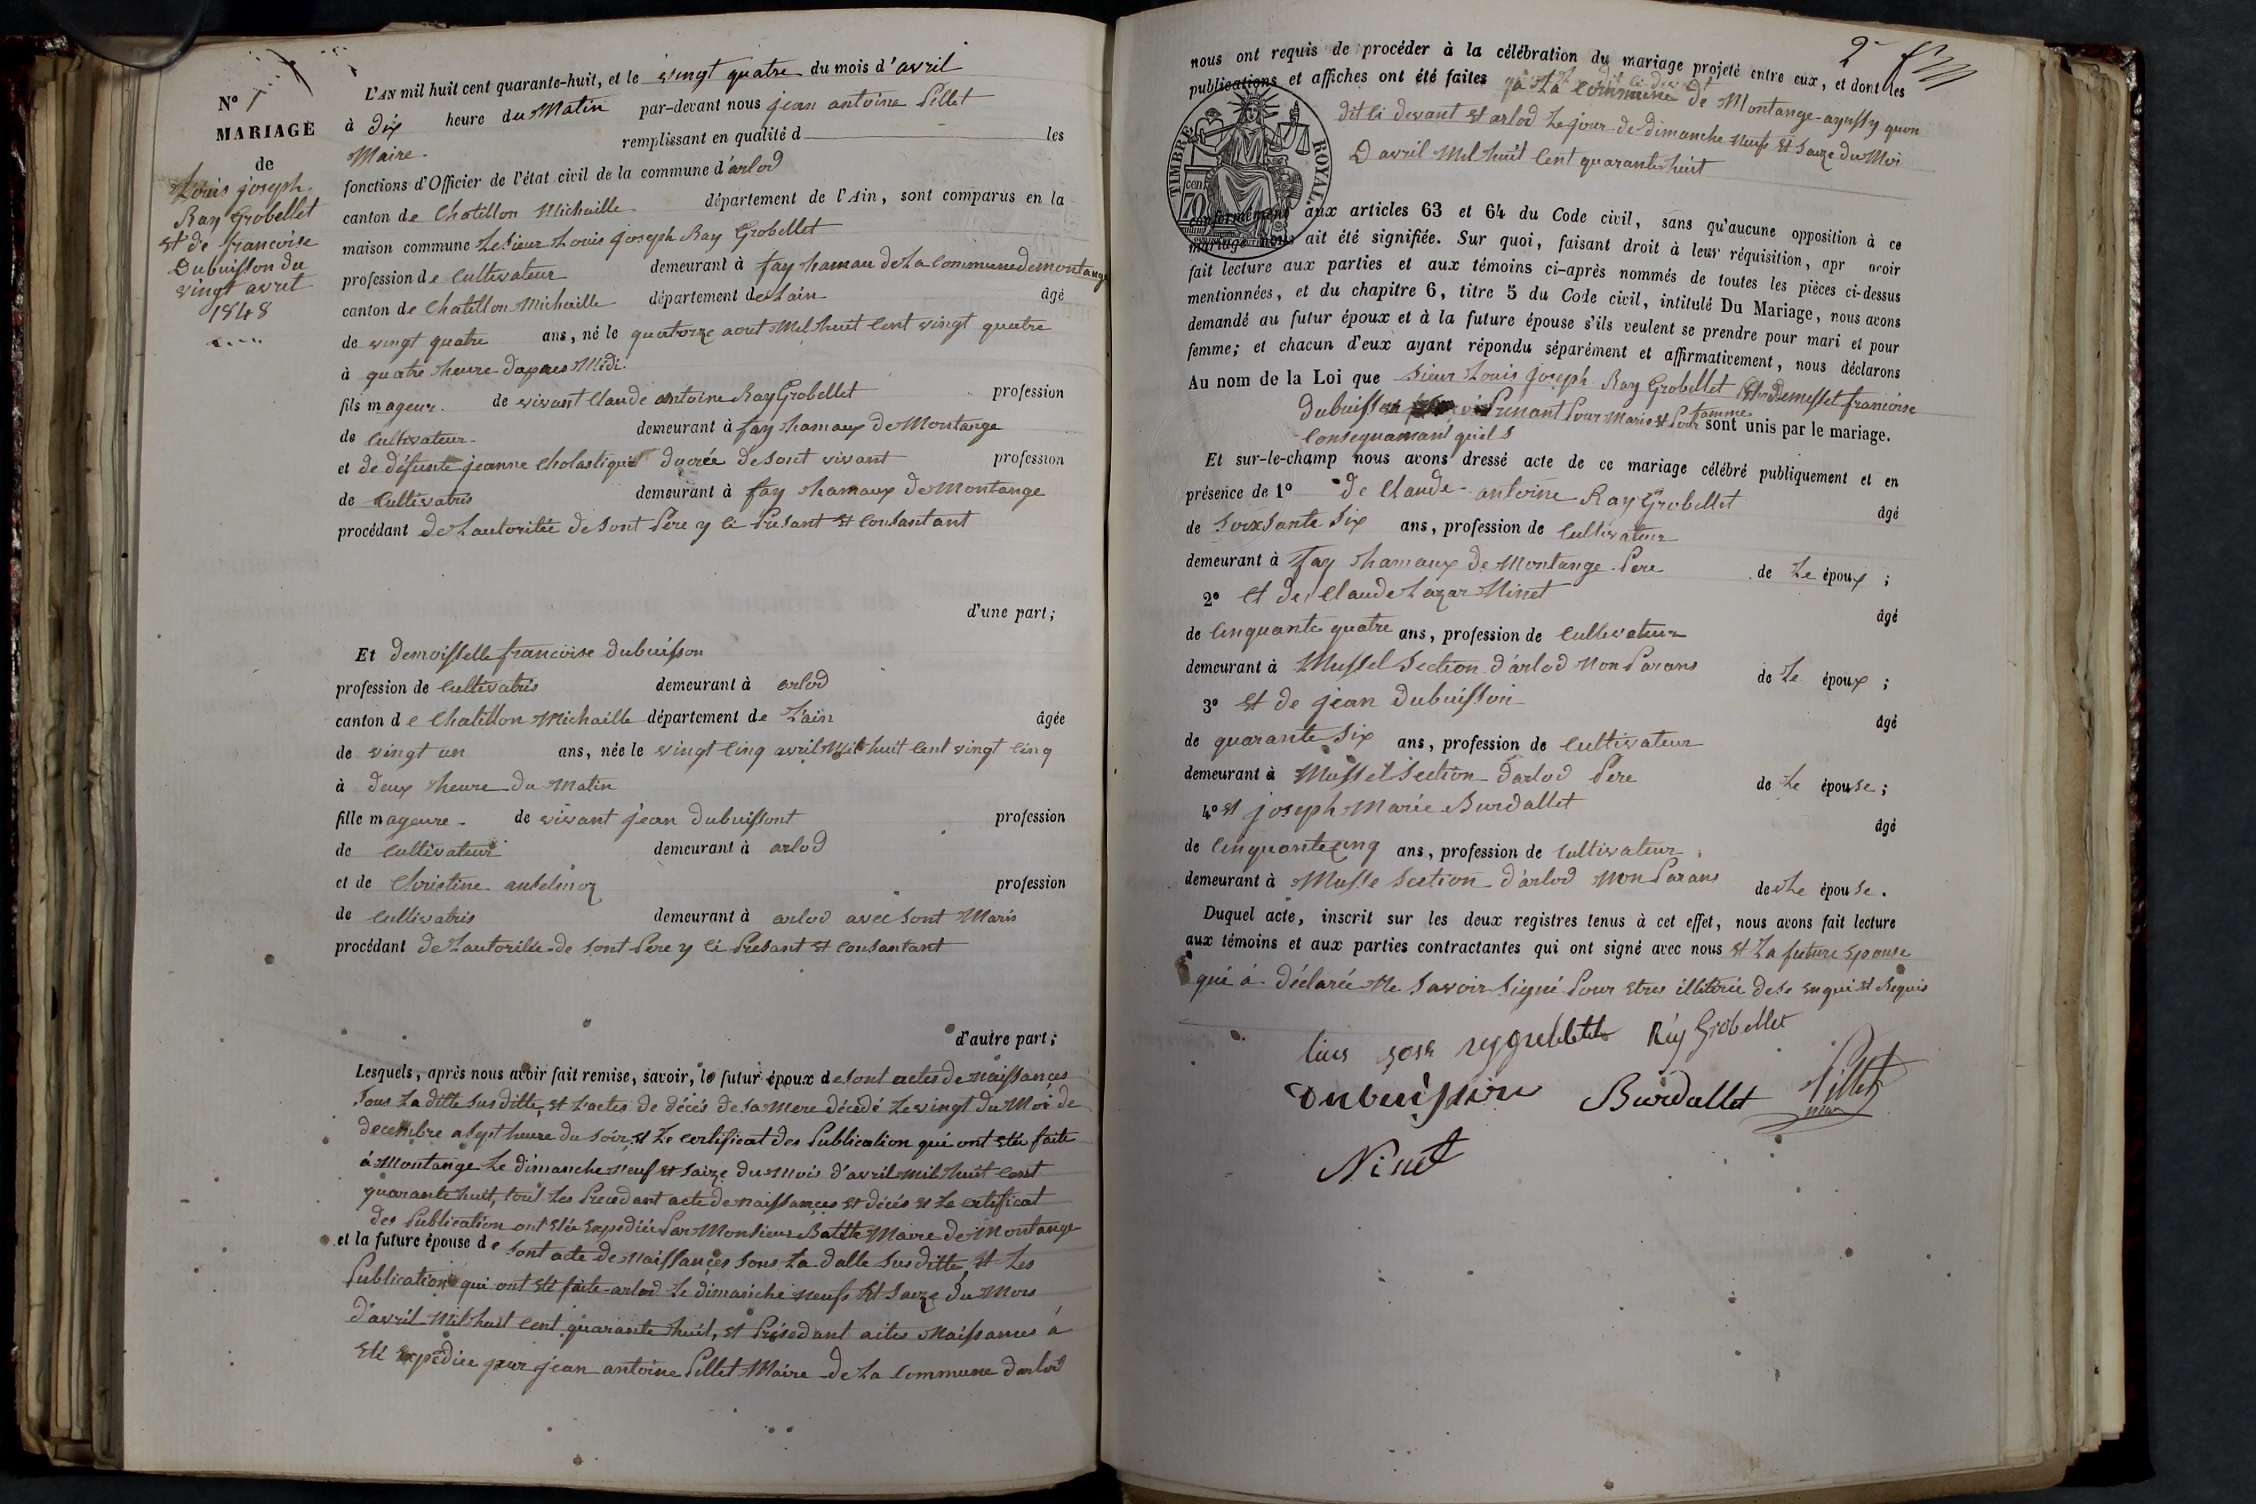 N° 1
MARIAGE
de
Louis joseph
Ray Grobellet
et de francoise
Dubuisson du
vingt avril
1848
L'AN mil huit cent quarante-huit, et le vingt quatre du mois d'avril
à dix heure du Matin par-devant nous jean antoine Pillet
Maire remplissant en qualité d les
fonctions d'Officier de l'état civil de la commune d'arlod
canton de Chatillon Michaille département de l'Ain, sont comparus en la
maison commune Le Sieur Louis joseph Ray Grobellet
profession de Cultivateur demeurant à fay hamau de La Commune de montange
canton de Chatillon Michaille département de Lain âgé
de vingt quatre ans, né le quatorze aout Mil huit Cent vingt quatre
à quatre heure dapres Midi
fils mageur de vivant Claude antoine Ray Grobellet profession
de Cultivateur demeurant à fay hamaux De Montange
et de défunte jeanne Cholastique ducrée de Sont vivant profession
de Cultivatris demeurant à fay hamaux De Montange
procédant de Lautoritée de Sont Pere y Ci Présant et Consantant
d'une part;
Et demoisselle francoise dubuisson
profession de Cultivatris demeurant à arlod
canton de Chatillon Michaille département de Lain âgée
de vingt un ans, née le vingt Cinq avril Mil huit Cent vingt Cinq
à deux heure du Matin
fille mageure de vivant jean dubuissont profession
de Cultivateur demeurant à arlod
et de Christine antelmoz profession
de Cultivatris demeurant à arlod avec Sont Maris
procédant de Lautoritée de Sont Pere y Ci Présant et Consantant
d'autre part;
Lesquels, après nous avoir fait remise, savoir, le futur époux de Sont actes de naissances
Sous La ditte Sus ditte, et Lactes de décès de Sa Mere décedé Le vingt du Moi de
decembre a Sept heure du Soir, et Le certificat des Publication qui ont été faite
à Montange Le dimanche Neuf et Saize du Mois d'avril mil huit Cent
quarante huit, tout Les Precedant acte de naissances et décés et Le certificat
des Publication ont étée Expediée Par Monsieur Batlle Maire de Montange
et la future épouse de Sont acte de Naissances Sous La datte Sus ditte, et Les
Publication qui ont été faite arlod Le dimanche neufs Et Saize du Mois
d'avril Mil huit Cent quarante huit, et Présedant actes Naissances a
Eté Expédiée par jean antoine Pillet Maire de La Commune darlod
2e
nous ont requis de procéder à la célébration du mariage projeté entre eux, et dont les
publications et affiches ont été faites à La Commune de Montange aynssy quon
dit Ci devant et arlod Le jour de dimanche Neufs et Saize du Moi
D avril Mil huit Cent quarante huit
TIMBRE ROYAL
70
conformément aux articles 63 et 64 du Code civil, sans qu'aucune opposition à ce
mariage nous ait été signifiée. Sur quoi, faisant droit à leur réquisition, apr avoir
fait lecture aux parties et aux témoins ci-après nommés de toutes les pièces ci-dessus
mentionnées, et du chapitre 6, titre 5 du Code civil, intitulé Du Mariage, nous avons
demandé au futur époux et à la future épouse s'ils veulent se prendre pour mari et pour
femme; et chacun d'eux ayant répondu séparément et affirmativement, nous déclarons
Au nom de la Loi que Sieur Louis joseph Ray Grobellet francoise
dubuisson Prenant Pour Maris et Pour famme
Consequamant quil S sont unis par le mariage.
Et sur-le-champ nous avons dressé acte de ce mariage célébré publiquement et en
présence de 1° de Claude antoine Ray Grobellet âgé
de Soixsante Six ans, profession de Cultivateur
demeurant à fay hamaux De Montange Pere de Le époux;
2° et de Claude Lazar Ninet âgé
de Cinquante quatre ans, profession de Cultivateur
demeurant à Mussel Section d'arlod Non Parans de Le époux;
3° et de jean dubuisson âgé
de quarante Six ans, profession de Cultivateur
demeurant à Mussel Section d'arlod Pere de Le épouse;
4° et joseph Marie Burdallet âgé
de Cinquante cinq ans, profession de Cultivateur
demeurant à Musse Section d'arlod Non Parans de Le épouse.
Duquel acte, inscrit sur les deux registres tenus à cet effet, nous avons fait lecture
aux témoins et aux parties contractantes qui ont signé avec nous et La future Epouse
qui á déclarée Ne Savoir Signé Pour Etres illitérée de Se Enqui et Requis
Réy Grobellet
Dubuisson Burdallet Pillet
Ninet